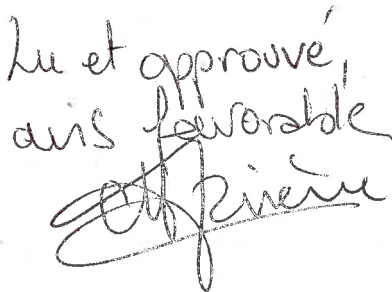 Lu et approuvé,
avis favorable